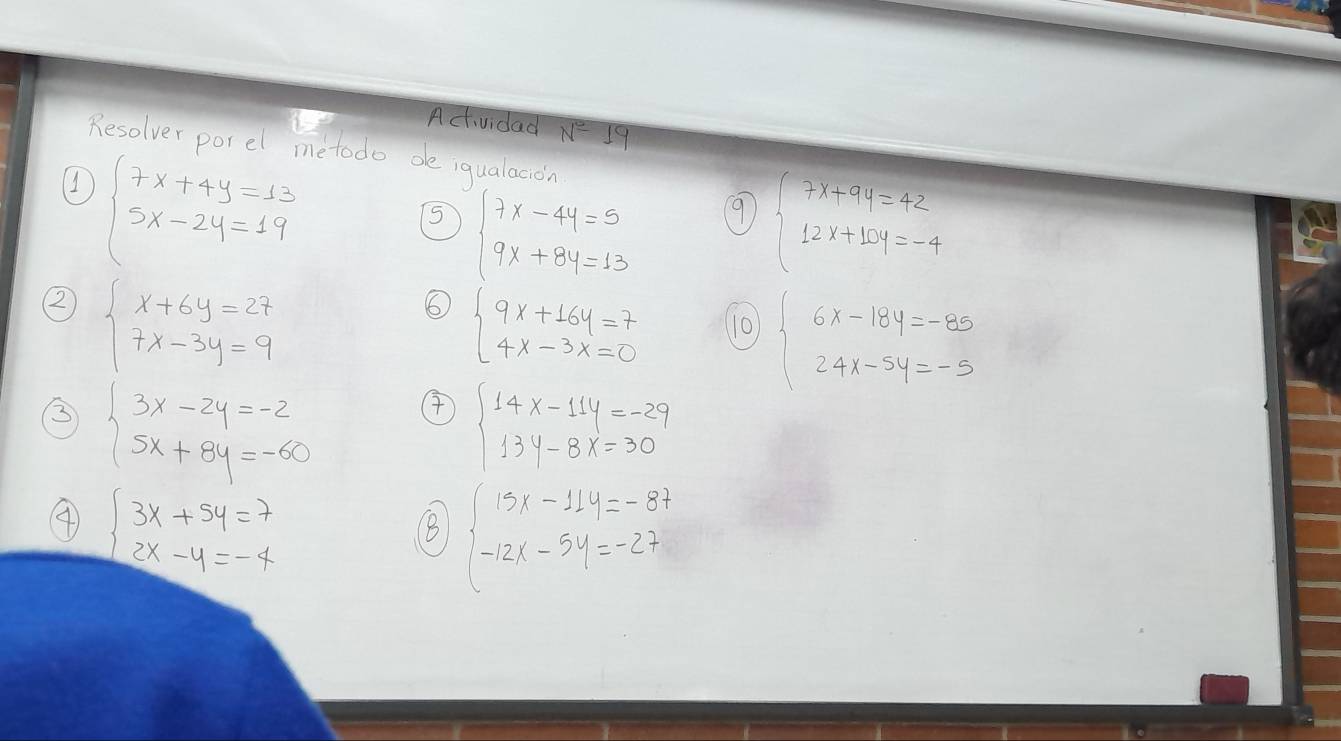 Actividad Nº 19
Resolver por el método de igualación.
① { 7x + 4y = 13
5x - 2y = 19
② { x + 6y = 27
7x - 3y = 9
③ { 3x - 2y = -2
5x + 8y = -60
④ { 3x + 5y = 7
2x - y = -4
⑤ { 7x - 4y = 5
9x + 8y = 13
⑥ { 9x + 16y = 7
4x - 3x = 0
⑦ { 14x - 11y = -29
13y - 8x = 30
⑧ { 15x - 11y = -87
-12x - 5y = -27
⑨ { 7x + 9y = 42
12x + 10y = -4
⑩ { 6x - 18y = -85
24x - 5y = -5